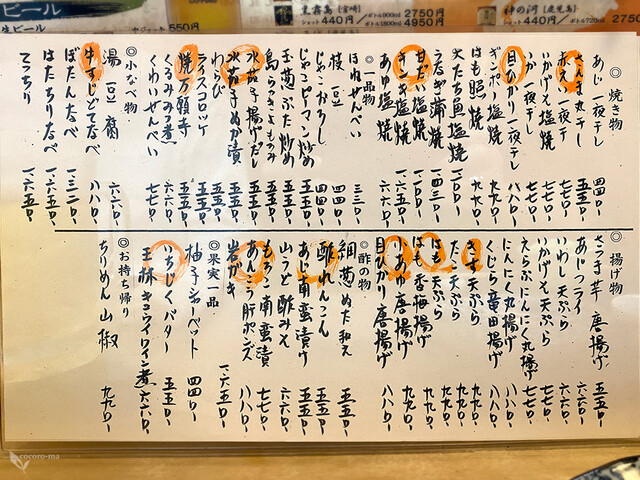 ビール
生ビール
ジョッキ 550円
黒霧島【宮崎】
ショット 440円／ボトル900ml 2750円 1800ml 4950円
神の河【鹿児島】
ショット 440円／ボトル720ml 2750円
◎焼き物
あじ一夜干し 四四〇-
さんま丸干し 五五〇-
一夜干 七七〇-
いかげそ塩焼 七七〇-
いか一夜干し 七七〇-
目ひかり一夜干し 八八〇-
ギンポ塩焼 九九〇-
はも照焼 九九〇-
太たち魚塩焼 一一〇〇-
うなぎ蒲焼 一四三〇-
甘だい塩焼 一一〇〇-
キンキ塩焼 一六五〇-
あゆ塩焼
◎一品物
ほねせんべい 三三〇-
枝(豆) 四四〇-
じゃこおろし 四四〇-
じゃこピーマン炒め 五五〇-
玉葱ぶた炒め 五五〇-
島らっきょもろみ 五五〇-
水茄子揚げだし 五五〇-
水茄子ぬか漬 五五〇-
わらび 五五〇-
ライスコロッケ 五五〇-
焼万願寺 六六〇-
くるみみつ煮 六六〇-
くわいせんべい 七七〇-
◎小なべ物
湯(豆)腐 六六〇-
牛すじどてなべ 八八〇-
ぼたんなべ 一三二〇-
はたちりなべ 一六五〇-
てっちり 一六五〇-
◎揚げ物
さつま芋唐揚げ 五五〇-
あじフライ 六六〇-
いかげそ天ぷら 七七〇-
えらぶにんにく丸揚げ 七七〇-
にんにく丸揚げ 八八〇-
くじら竜田揚げ 八八〇-
きす天ぷら 九九〇-
たこ天ぷら 九九〇-
はも天ぷら 九九〇-
はも香梅揚げ 九九〇-
小あゆ唐揚げ 九九〇-
目ひかり唐揚げ 八八〇-
◎酢の物
細葱ぬた和え 五五〇-
酢れんこん 五五〇-
あじ南蛮漬け 五五〇-
山うど酢みそ 六六〇-
もろこ南蛮漬 七七〇-
あんこう肝ポンズ 八八〇-
岩がき 一六五〇-
◎果実一品
柚子シャーベット 四四〇-
いちじくバター 五五〇-
玉林キョウイワイン煮 六六〇-
◎お持ち帰り
ちりめん山椒 九九〇-
cocoro-ma